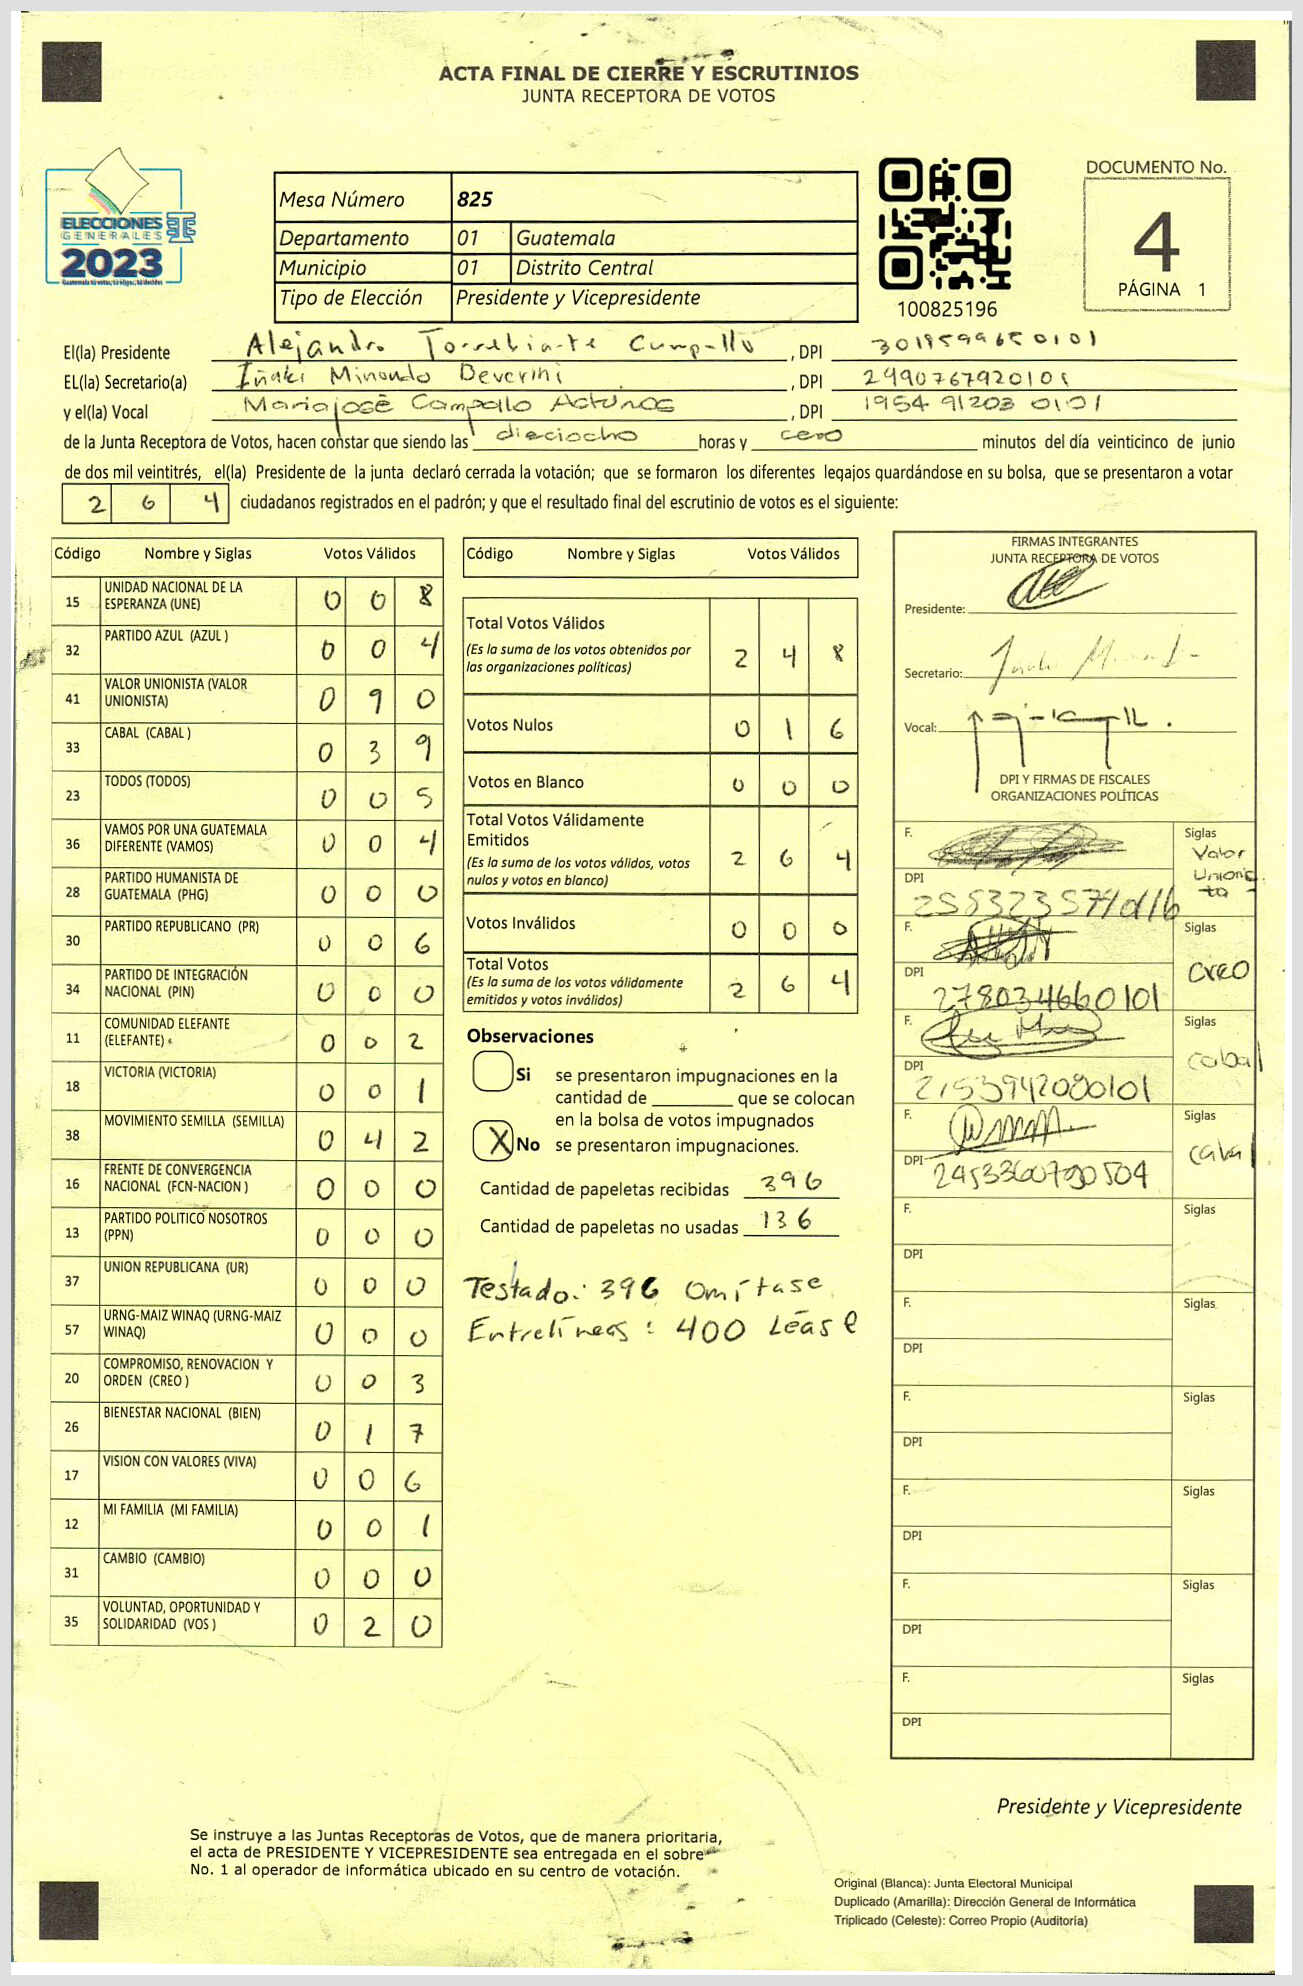 ACTA FINAL DE CIERRE Y ESCRUTINIOS
JUNTA RECEPTORA DE VOTOS
ELECCIONES
GENERALES
2023
Mesa Número 825
Departamento 01 Guatemala
Municipio 01 Distrito Central
Tipo de Elección Presidente y Vicepresidente
100825196
DOCUMENTO No.
4
PÁGINA 1
El(la) Presidente Alejandro Torrebiarte Campollo , DPI
EL(la) Secretario(a) Iñaki Minondo , DPI 2990767920101
y el(la) Vocal Mariajosé Campollo , DPI 1954 91203 0101
de la Junta Receptora de Votos, hacen constar que siendo las dieciocho horas y cero minutos del día veinticinco de junio
de dos mil veintitrés, el(la) Presidente de la junta declaró cerrada la votación; que se formaron los diferentes legajos guardándose en su bolsa, que se presentaron a votar
2 6 4 ciudadanos registrados en el padrón; y que el resultado final del escrutinio de votos es el siguiente:
Código Nombre y Siglas Votos Válidos
15 UNIDAD NACIONAL DE LA ESPERANZA (UNE) 0 0 8
32 PARTIDO AZUL (AZUL ) 0 0 4
41 VALOR UNIONISTA (VALOR UNIONISTA) 0 9 0
33 CABAL (CABAL ) 0 3 9
23 TODOS (TODOS) 0 0 5
36 VAMOS POR UNA GUATEMALA DIFERENTE (VAMOS) 0 0 4
28 PARTIDO HUMANISTA DE GUATEMALA (PHG) 0 0 0
30 PARTIDO REPUBLICANO (PR) 0 0 6
34 PARTIDO DE INTEGRACIÓN NACIONAL (PIN) 0 0 0
11 COMUNIDAD ELEFANTE (ELEFANTE) 0 0 2
18 VICTORIA (VICTORIA) 0 0 1
38 MOVIMIENTO SEMILLA (SEMILLA) 0 4 2
16 FRENTE DE CONVERGENCIA NACIONAL (FCN-NACION ) 0 0 0
13 PARTIDO POLITICO NOSOTROS (PPN) 0 0 0
37 UNION REPUBLICANA (UR) 0 0 0
57 URNG-MAIZ WINAQ (URNG-MAIZ WINAQ) 0 0 0
20 COMPROMISO, RENOVACION Y ORDEN (CREO ) 0 0 3
26 BIENESTAR NACIONAL (BIEN) 0 1 7
17 VISION CON VALORES (VIVA) 0 0 6
12 MI FAMILIA (MI FAMILIA) 0 0 1
31 CAMBIO (CAMBIO) 0 0 0
35 VOLUNTAD, OPORTUNIDAD Y SOLIDARIDAD (VOS ) 0 2 0
Código Nombre y Siglas Votos Válidos
Total Votos Válidos
(Es la suma de los votos obtenidos por
las organizaciones políticas) 2 4 8
Votos Nulos 0 1 6
Votos en Blanco 0 0 0
Total Votos Válidamente
Emitidos
(Es la suma de los votos válidos, votos
nulos y votos en blanco) 2 6 4
Votos Inválidos 0 0 0
Total Votos
(Es la suma de los votos válidamente
emitidos y votos inválidos) 2 6 4
Observaciones
Si se presentaron impugnaciones en la
cantidad de ________ que se colocan
en la bolsa de votos impugnados
X No se presentaron impugnaciones.
Cantidad de papeletas recibidas 396
Cantidad de papeletas no usadas 136
Testado: 396 Omítase
Entrelíneas: 400 Léase
FIRMAS INTEGRANTES
JUNTA RECEPTORA DE VOTOS
Presidente:
Secretario:
Vocal:
DPI Y FIRMAS DE FISCALES
ORGANIZACIONES POLÍTICAS
F. Siglas
Valor
Unionis
ta
DPI
F. Siglas
Creo
DPI 278034660101
F. Siglas
cabal
DPI 2153942080101
F. Siglas
cabal
DPI 2453360790504
F. Siglas
DPI
F. Siglas
DPI
F. Siglas
DPI
F. Siglas
DPI
F. Siglas
DPI
F. Siglas
DPI
Presidente y Vicepresidente
Se instruye a las Juntas Receptoras de Votos, que de manera prioritaria,
el acta de PRESIDENTE Y VICEPRESIDENTE sea entregada en el sobre
No. 1 al operador de informática ubicado en su centro de votación.
Original (Blanca): Junta Electoral Municipal
Duplicado (Amarilla): Dirección General de Informática
Triplicado (Celeste): Correo Propio (Auditoría)